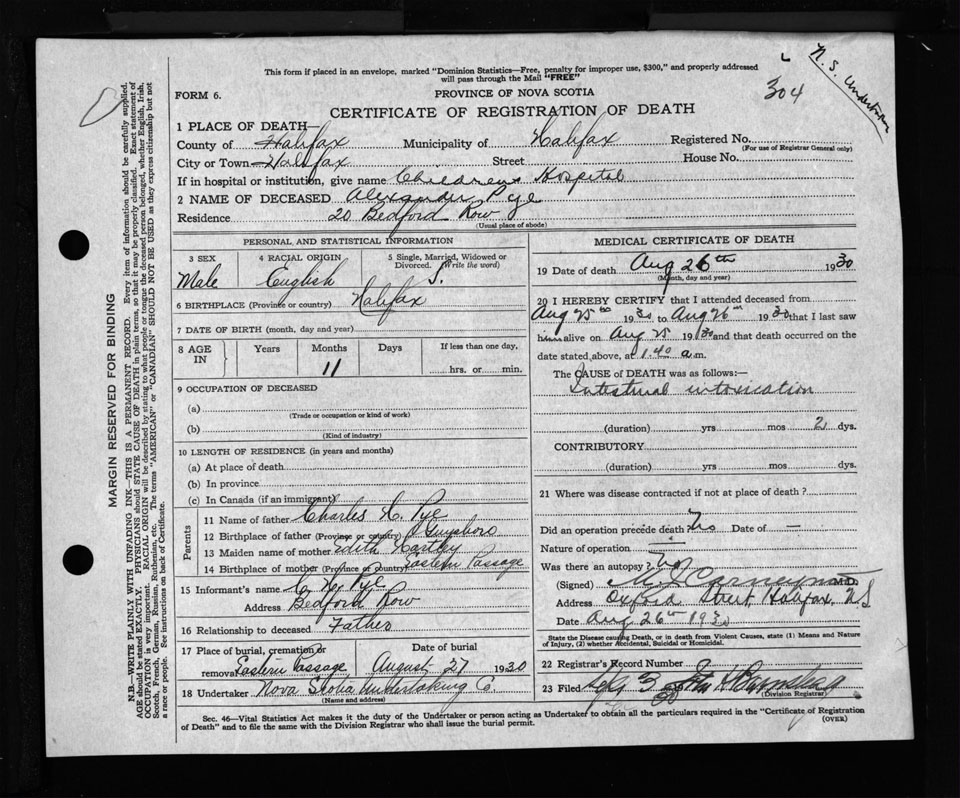 This form if placed in an envelope, marked "Dominion Statistics—Free, penalty for improper use, $300," and properly addressed
will pass through the Mail "FREE"
N. S. Undertaking
304
FORM 6.
PROVINCE OF NOVA SCOTIA
CERTIFICATE OF REGISTRATION OF DEATH
1 PLACE OF DEATH—
County of Halifax Municipality of Halifax Registered No.
(For use of Registrar General only)
City or Town Halifax Street House No.
If in hospital or institution, give name Childrens Hospital
2 NAME OF DECEASED Alexander Pye
Residence 20 Bedford Row
(Usual place of abode)
PERSONAL AND STATISTICAL INFORMATION
3 SEX 4 RACIAL ORIGIN 5 Single, Married, Widowed or Divorced. (Write the word)
Male English S.
6 BIRTHPLACE (Province or country) Halifax
7 DATE OF BIRTH (month, day and year)
8 AGE IN Years Months Days If less than one day,
11 hrs. or min.
9 OCCUPATION OF DECEASED
(a)
(Trade or occupation or kind of work)
(b)
(Kind of industry)
10 LENGTH OF RESIDENCE (in years and months)
(a) At place of death
(b) In province
(c) In Canada (if an immigrant)
Parents
11 Name of father Charles H. Pye
12 Birthplace of father (Province or country) Guysboro
13 Maiden name of mother Edith Hartley
14 Birthplace of mother (Province or country) Eastern Passage
15 Informant's name C. H. Pye
Address Bedford Row
16 Relationship to deceased Father
17 Place of burial, cremation or removal Eastern Passage
Date of burial August 27 1930
18 Undertaker Nova Scotia Undertaking Co.
(Name and address)
MEDICAL CERTIFICATE OF DEATH
19 Date of death Aug 26th 1930
(Month, day and year)
20 I HEREBY CERTIFY that I attended deceased from
Aug 25th 1930 to Aug 26th 1930 that I last saw
him alive on Aug 25 1930 and that death occurred on the
date stated above, at 1.40 a.m.
The CAUSE OF DEATH was as follows:—
Intestinal intoxication
(duration) yrs mos 2 dys.
CONTRIBUTORY
(duration) yrs mos dys.
21 Where was disease contracted if not at place of death?
Did an operation precede death? No Date of —
Nature of operation —
Was there an autopsy? No
(Signed) M.D.
Address Oxford Street Halifax, N S
Date Aug 26th 1930
State the Disease causing Death, or in death from Violent Causes, state (1) Means and Nature
of Injury, (2) whether Accidental, Suicidal or Homicidal.
22 Registrar's Record Number
23 Filed Sept 3 30 John
(Division Registrar)
Sec. 46—Vital Statistics Act makes it the duty of the Undertaker or person acting as Undertaker to obtain all the particulars required in the "Certificate of Registration
of Death" and to file the same with the Division Registrar who shall issue the burial permit. (OVER)
MARGIN RESERVED FOR BINDING
N.B.—WRITE PLAINLY WITH UNFADING INK—THIS IS A PERMANENT RECORD. Every item of information should be carefully supplied.
AGE should be stated EXACTLY. PHYSICIANS should STATE CAUSE OF DEATH in plain terms, so that it may be properly classified. Exact statement of
OCCUPATION is very important. RACIAL ORIGIN will be described by stating to what people or tongue the deceased person belonged, whether English, Irish,
Scotch, French, German, Russian, Ruthenian, etc. The terms "AMERICAN" or "CANADIAN" SHOULD NOT BE USED as they express citizenship but not
a race or people. See instructions on back of Certificate.